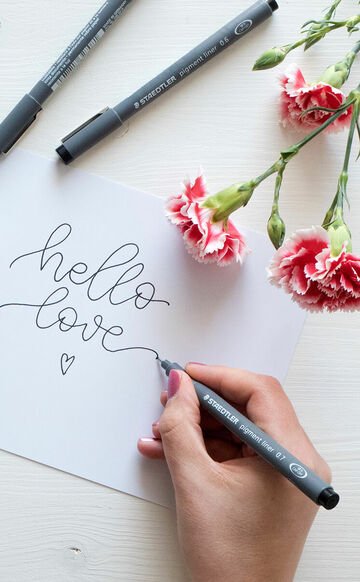 STAEDTLER pigment liner 0.6
hello
love
STAEDTLER pigment liner 0.7